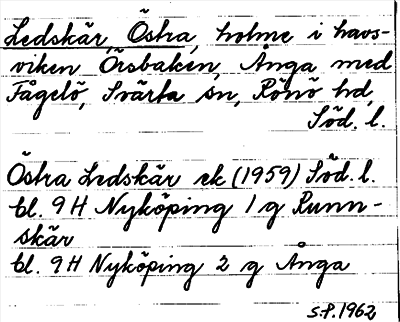 Ledskär, Östra, holme i havs-
viken Örsbaken, Ånga med
Fågelö, Svärta sn, Rönö hd,
Söd. l.
Östra Ledskär ek (1959) Söd. l.
bl. 9 H Nyköping 1 g Runn-
skär
bl. 9 H Nyköping 2 g Ånga
S.P. 1962